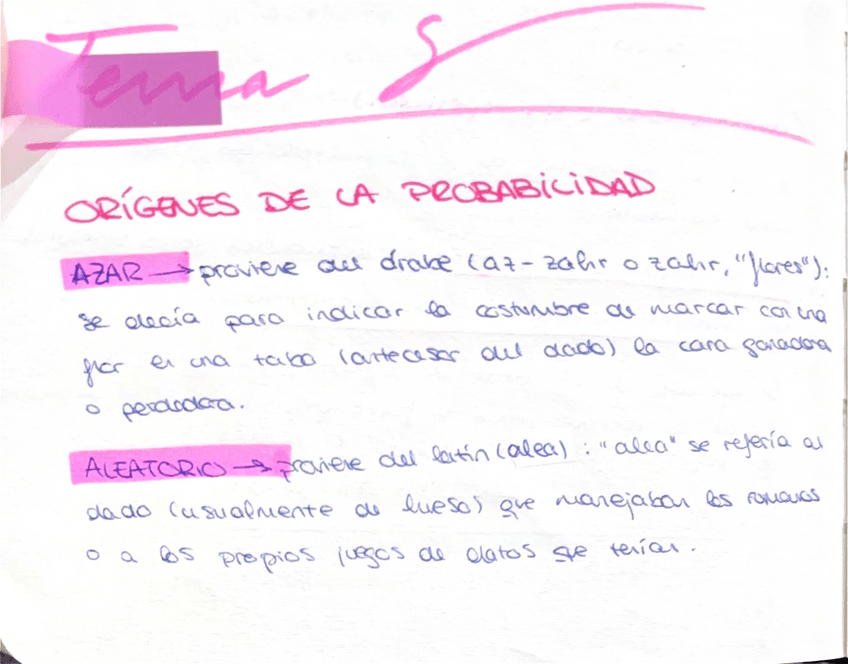 Tema 5
ORÍGENES DE LA PROBABILIDAD
AZAR → proviene del árabe (az-zahr o zahr, "flores"):
se decía para indicar la costumbre de marcar con una
flor en una taba (antecesor del dado) la cara ganadora
o perdedora.
ALEATORIO → proviene del latín (alea) : "alea" se refería al
dado (usualmente de hueso) que manejaban los romanos
o a los propios juegos de datos que tenían.